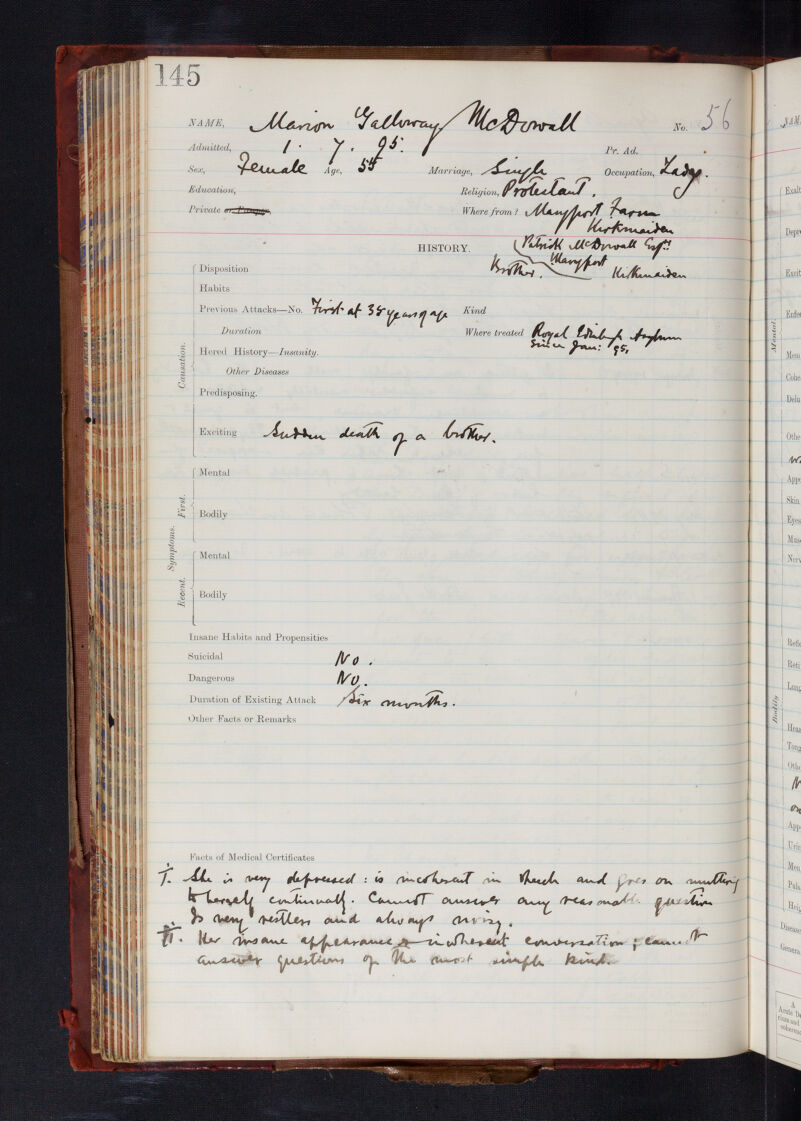 145
NAME, Marion Galloway McDowall No. 56
Admitted, 1. 7. 95. Pr. Ad.
Sex, Female Age, 55 Marriage, Single Occupation, Lady.
Education, Religion, Protestant.
Private or Pauper, Where from? Maryport Farm
Kirkmaiden
HISTORY. Patrick McDowall Esqre
Brother. Maryport Kirkmaiden
Disposition
Habits
Previous Attacks—No. First at 35 years of age Kind
Duration Where treated Royal Edinburgh Asylum
since Jan: 95.
Hered History—Insanity.
Other Diseases
Causation.
Predisposing.
Exciting Sudden death of a brother.
Mental
First.
Bodily
Symptoms.
Mental
Recent.
Bodily
Insane Habits and Propensities
Suicidal No.
Dangerous No.
Duration of Existing Attack Six months.
Other Facts or Remarks
Facts of Medical Certificates
I. She is very depressed: is incoherent in speech and goes on muttering
to herself continually. Cannot answer any reasonable question
Is very restless and always noisy.
II. Her insane appearance & incoherent conversation; cannot
answer questions of the most simple kind.
NAM
Exalt
Depre
Excit
Enfe
Mental.
Mem
Cohe
Delu
Othe
App
Skin
Eyes
Mus
Nerv
Refle
Reti
Lung
Bodily
Hear
Tong
Othe
App
Urin
Men
Puls
Heig
Disease
Genera
A
Acute De
rium and
coherenc